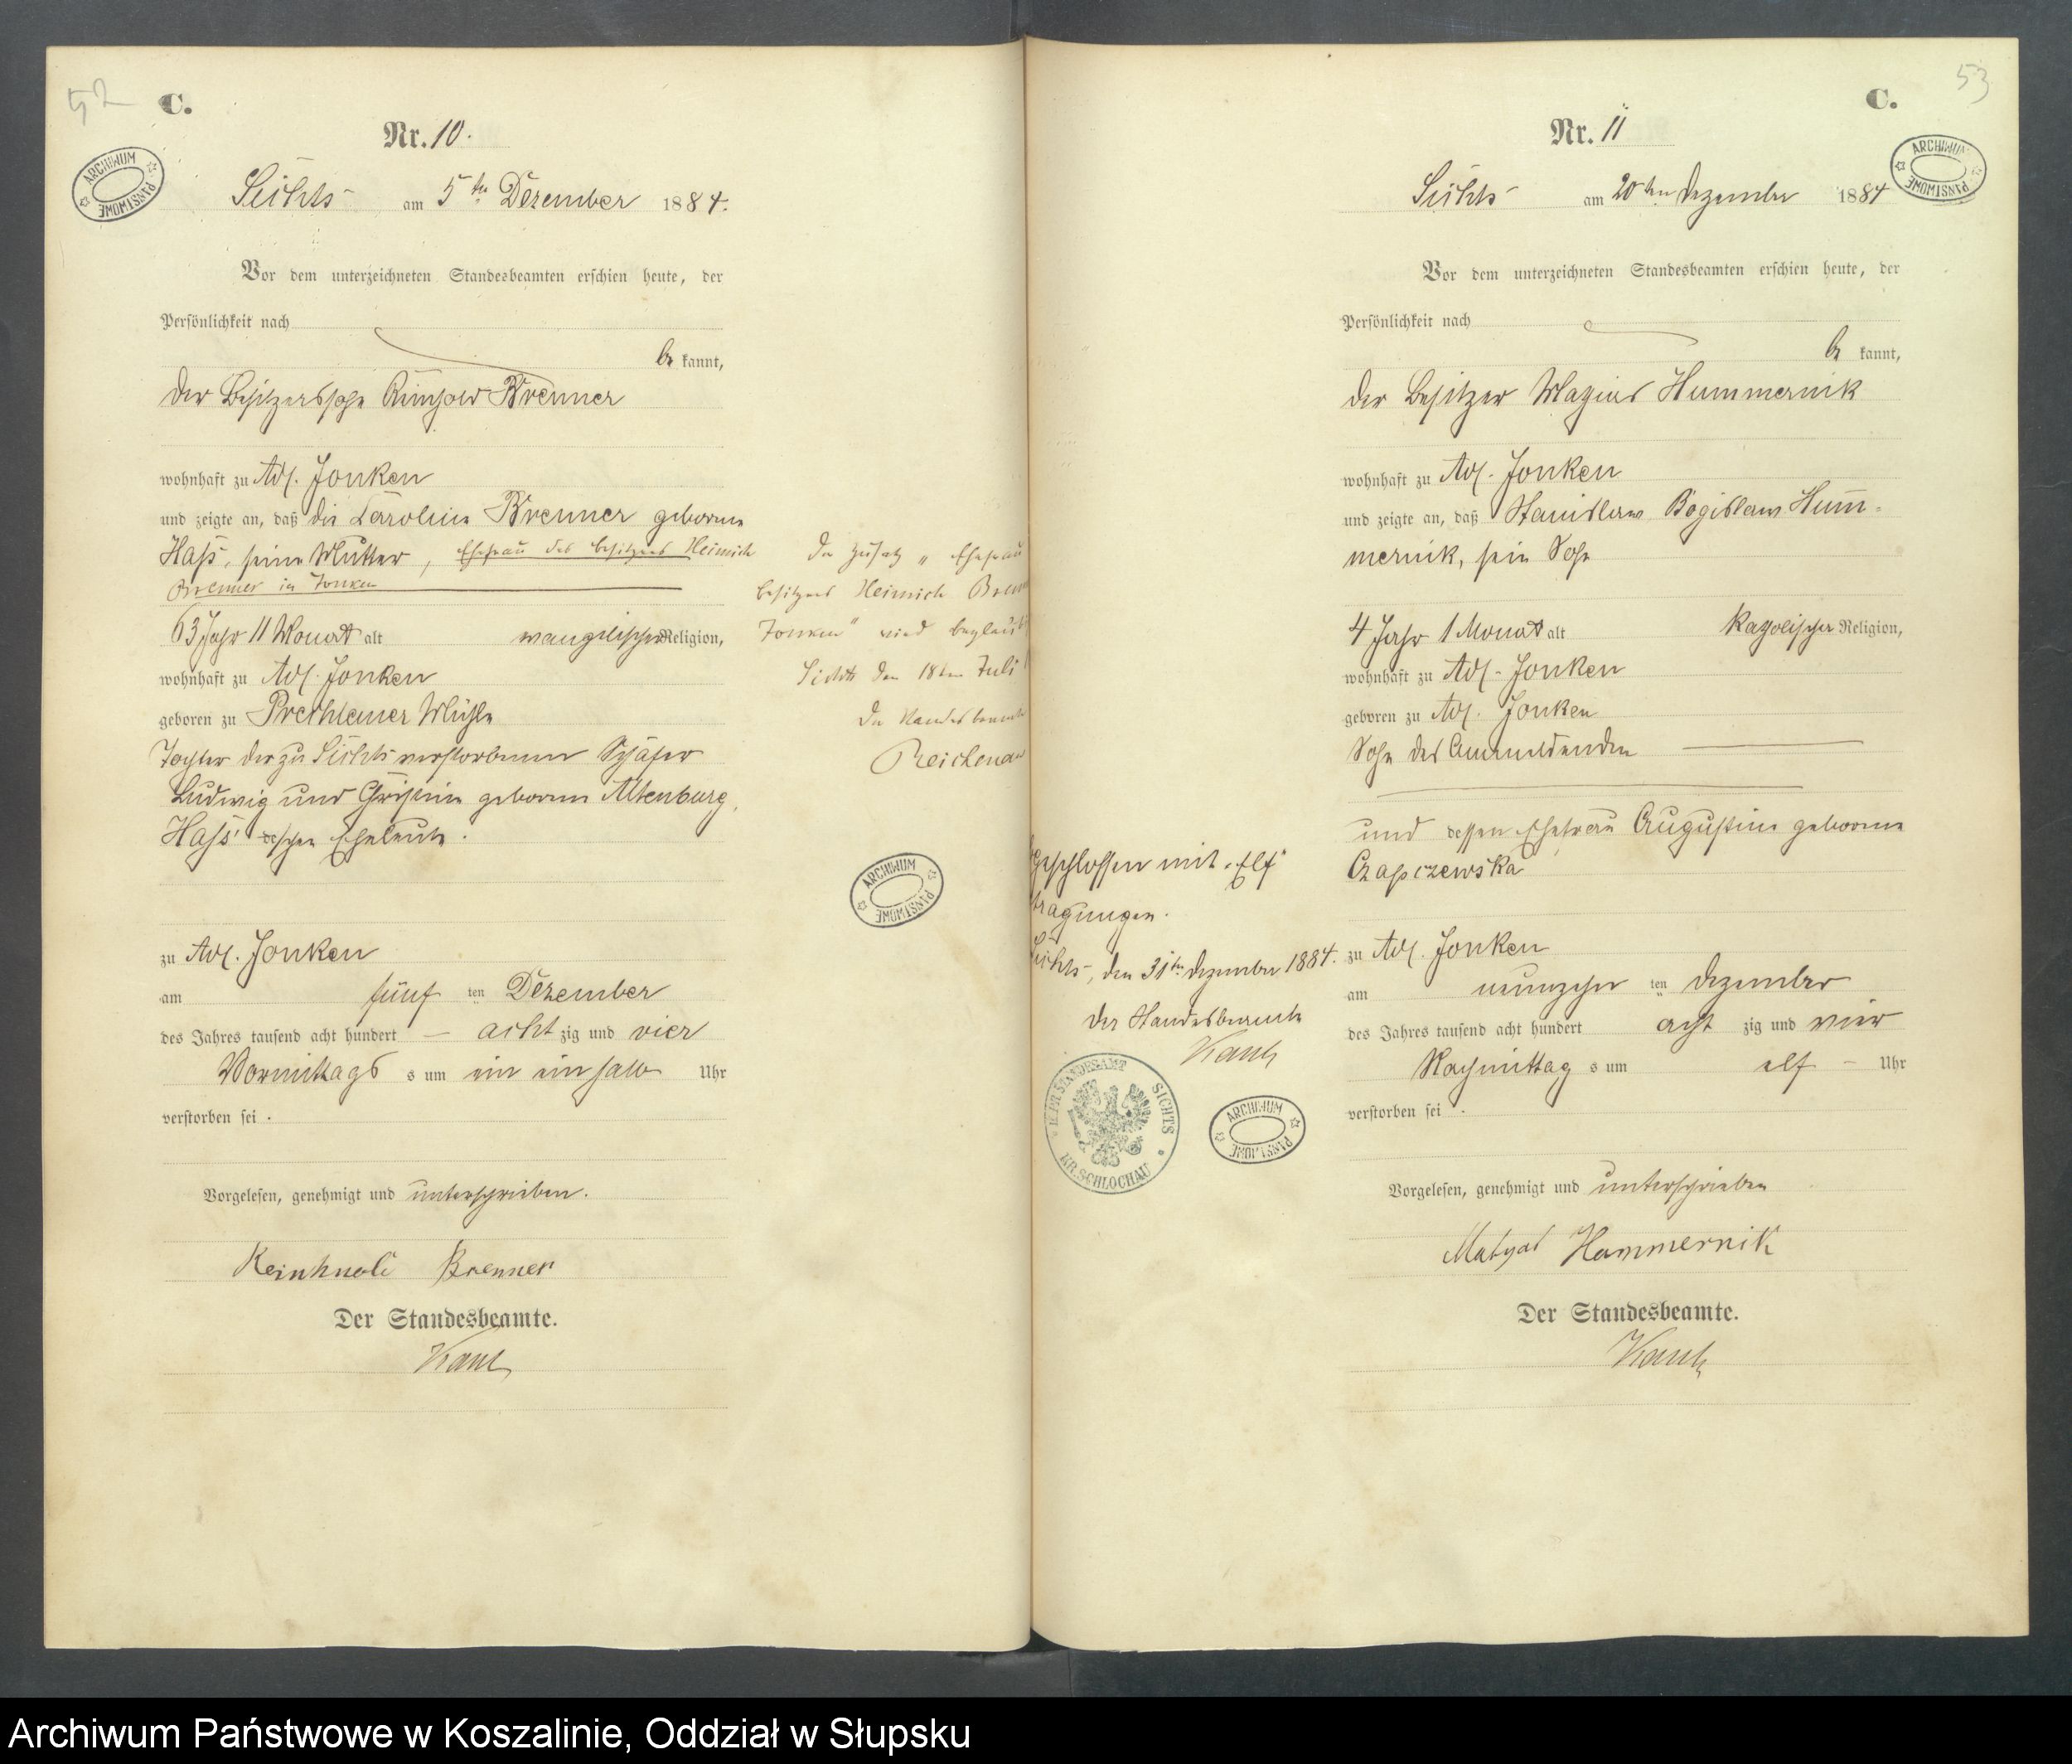 52
C.
Nr. 10.
ARCHIWUM PAŃSTWOWE
Sichts am 5ten Dezember 1884.
Vor dem unterzeichneten Standesbeamten erschien heute, der
Persönlichkeit nach
be kannt,
der Besitzerssohn Reinhold Brenner
wohnhaft zu Adl. Jonken
und zeigte an, daß die Caroline Brenner geborene
Hass, seine Mutter, Ehefrau des Besitzers Heinrich
Brenner in Jonken
63 Jahr 11 Monat alt evangelischer Religion,
wohnhaft zu Adl. Jonken
geboren zu Prechlauer Mühle
Tochter der zu Sichts verstorbenen Schäfer
Ludwig und Christine geborene Altenburg,
Hass'schen Eheleute.
zu Adl. Jonken
am fünf ten Dezember
des Jahres tausend acht hundert – acht zig und vier
Vormittags s um ein ein halb Uhr
verstorben sei.
Vorgelesen, genehmigt und unterschrieben.
Reinhold Brenner
Der Standesbeamte.
Der Zusatz „Ehefrau
Besitzers Heinrich
Jonken" wird
Sichts den 18ten Juli
Der Standesbeamte
Reichenau
ARCHIWUM PAŃSTWOWE
geschlossen mit „Elf"
tragungen.
Sichts, den 31ten Dezember 1884.
Der Standesbeamte
K. PR. STANDESAMT SICHTS
KR. SCHLOCHAU
ARCHIWUM PAŃSTWOWE
53
C.
Nr. 11
ARCHIWUM PAŃSTWOWE
Sichts am 20ten Dezember 1884
Vor dem unterzeichneten Standesbeamten erschien heute, der
Persönlichkeit nach
be kannt,
der Besitzer Hummernik
wohnhaft zu Adl. Jonken
und zeigte an, daß Stanislaw Bogislaw Hum-
mernik, sein Sohn
4 Jahr 1 Monat alt katholischer Religion,
wohnhaft zu Adl. Jonken
geboren zu Adl. Jonken
Sohn des Anmeldenden
und dessen Ehefrau Augustine geborene
Czapczewska
zu Adl. Jonken
am neunzehn ten Dezember
des Jahres tausend acht hundert acht zig und vier
Nachmittag s um elf – Uhr
verstorben sei.
Vorgelesen, genehmigt und unterschrieben
Hammernik
Der Standesbeamte.
Archiwum Państwowe w Koszalinie, Oddział w Słupsku